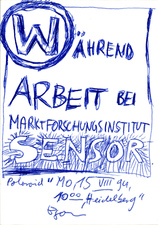 WÄHREND
ARBEIT BEI
MARKTFORSCHUNGSINSTITUT
SENSOR
Polaroid "MO, 15 VIII 94,
10:00 Heidelberg"